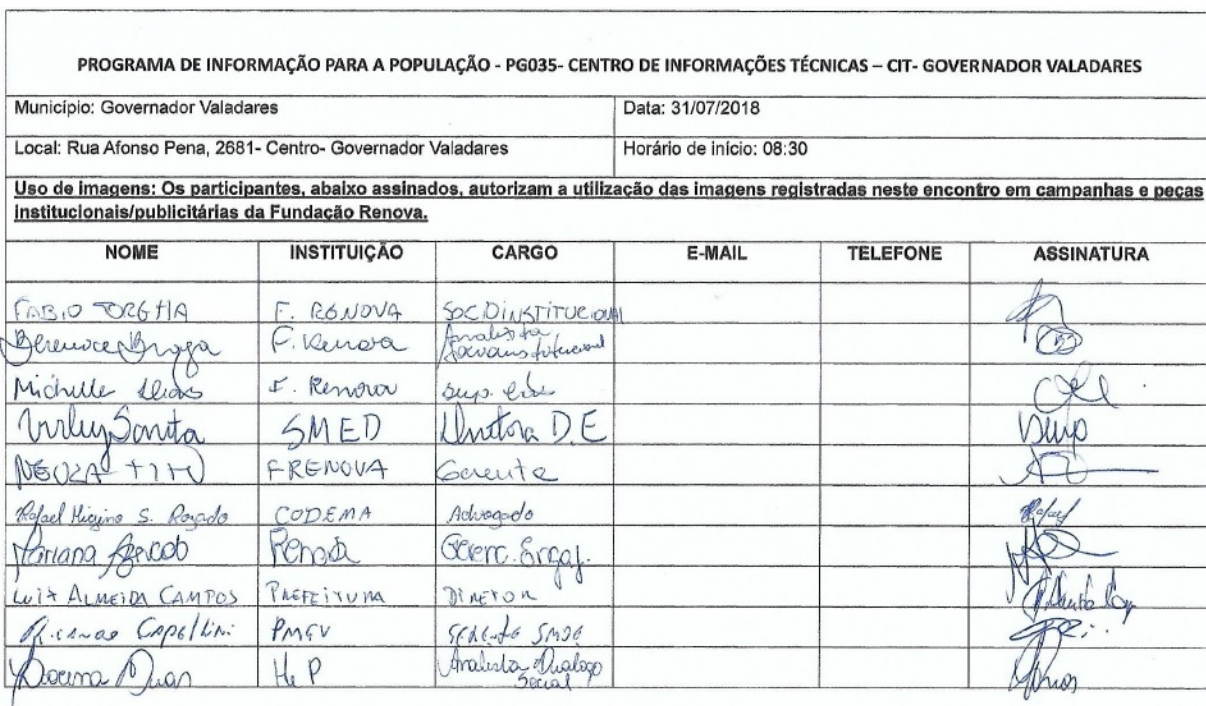 PROGRAMA DE INFORMAÇÃO PARA A POPULAÇÃO - PG035- CENTRO DE INFORMAÇÕES TÉCNICAS – CIT- GOVERNADOR VALADARES
Município: Governador Valadares Data: 31/07/2018
Local: Rua Afonso Pena, 2681- Centro- Governador Valadares Horário de início: 08:30
Uso de imagens: Os participantes, abaixo assinados, autorizam a utilização das imagens registradas neste encontro em campanhas e peças
institucionais/publicitárias da Fundação Renova.
NOME INSTITUIÇÃO CARGO E-MAIL TELEFONE ASSINATURA
FABIO F. RENOVA SOCIOINSTITUCIONAL
Berenice Braga F. Renova Analista
Michelle F. Renova Sup.
SMED Diretora D.E
F RENOVA Gerente
Rafael Higino S. Rosado CODEMA Advogado Rafael
Mariana Renova Gerenc. Engaj.
LUIZ ALMEIDA CAMPOS PREFEITURA DIRETOR
Ricardo Capellini PMGV
H&P Analista Dialogo
Social